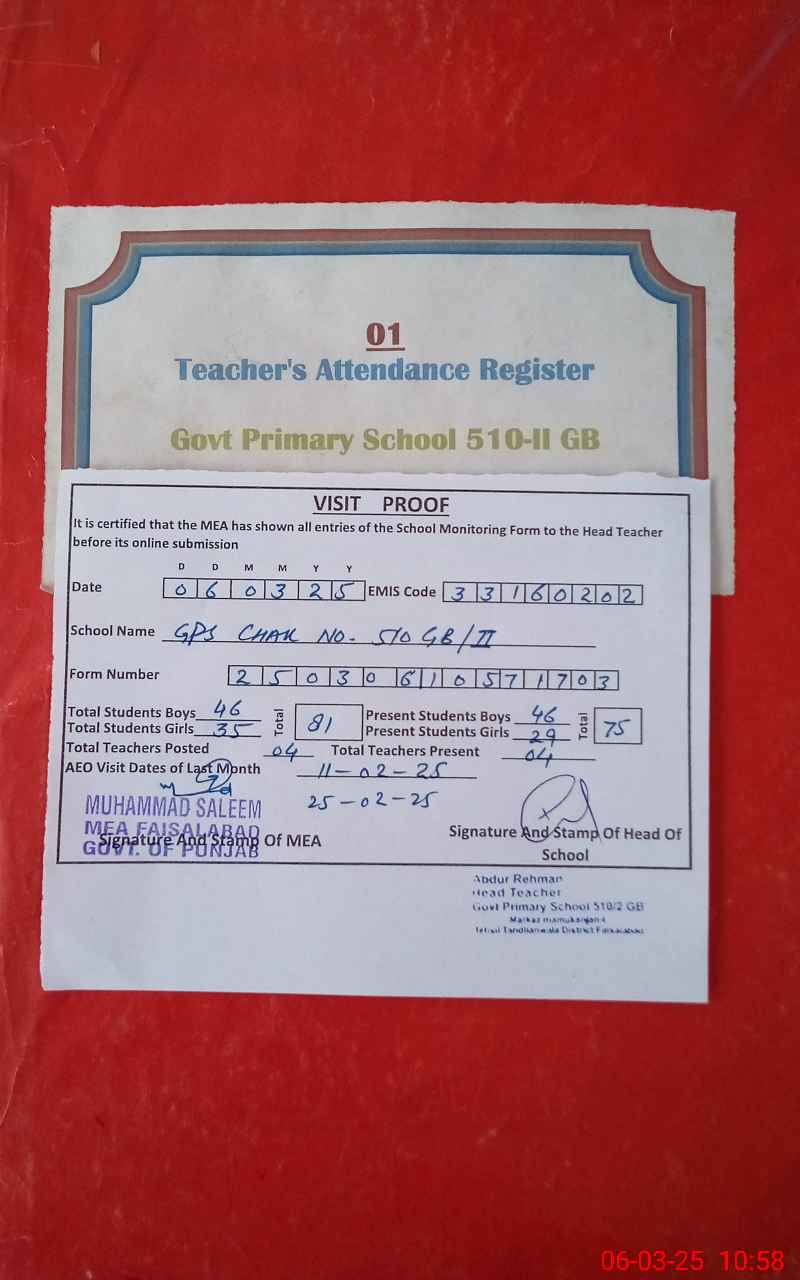 01
Teacher's Attendance Register
Govt Primary School 510-II GB
VISIT PROOF
It is certified that the MEA has shown all entries of the School Monitoring Form to the Head Teacher
before its online submission
D D M M Y Y
Date 0 6 0 3 2 5 EMIS Code 3 3 1 6 0 2 0 2
School Name GPS CHAK NO. 510 GB/II
Form Number 2 5 0 3 0 6 1 0 5 7 1 7 0 3
Total Students Boys 46 Total 81 Present Students Boys 46 Total 75
Total Students Girls 35 Present Students Girls 29
Total Teachers Posted 04 Total Teachers Present 04
AEO Visit Dates of Last Month 11-02-25
25-02-25
MUHAMMAD SALEEM
MEA FAISALABAD
GOVT. OF PUNJAB
Signature And Stamp Of MEA
Signature And Stamp Of Head Of
School
Abdur Rehman
Head Teacher
Govt Primary School 510/2 GB
Markaz mamukanjan-I
Tehsil Tandlianwala District Faisalabad
06-03-25 10:58